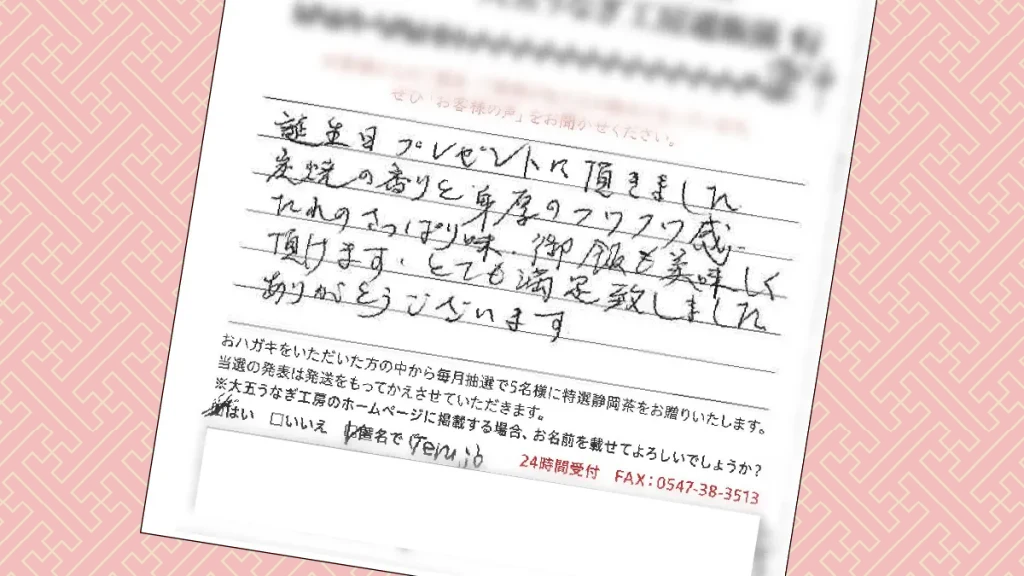 せひ「お客様の声」をお聞かせください。
誕生日プレゼントに頂きました
炭焼の香りと身厚のフワフワ感
たれのさっぱり味、御飯も美味しく
頂けます、とても満足致しました
ありがとうございます
おハガキをいただいた方の中から毎月抽選で5名様に特選静岡茶をお贈りいたします。
当選の発表は発送をもってかえさせていただきます。
※大五うなぎ工房のホームページに掲載する場合、お名前を載せてよろしいでしょうか？
はい □いいえ 匿名で
24時間受付 FAX：0547-38-3513